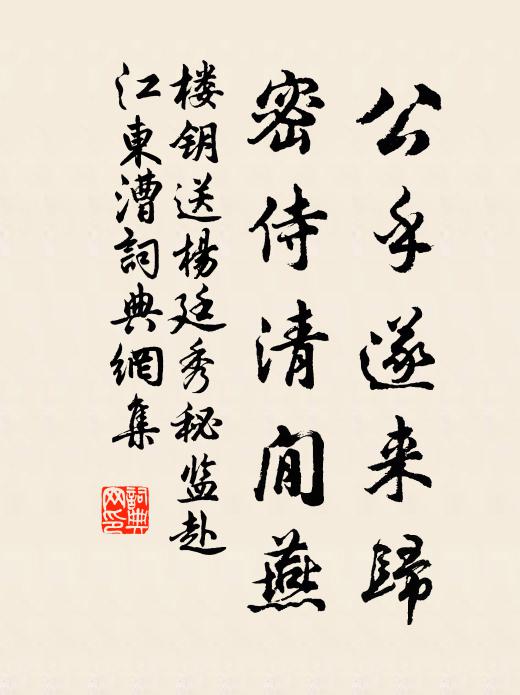 公乎遂来歸
密侍清閒燕
楼钥送楊廷秀秘监赴
江東漕詞典網集
詞典网印